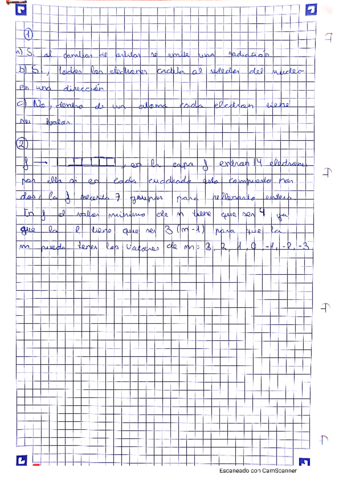 ①
a) Si al cambiar de orbitas se emite una radiación
b) Si, todos los electrones orbita al rededor del nucleo
en una dirección
c) No, dentro de un atomo cada electron tiene
su lugar
②
f → , en la capa f entran 14 electrones
por ello si en cada cuadrado esta compuesto por
dos, la f necesita 7 para rellenarlo entero
En f el valor minimo de n tiene que ser 4 ya
que la l tiene que ser 3 (n-1) para que la
m pueda tener los valores de m: 3, 2, 1, 0, -1, -2, -3
Escaneado con CamScanner